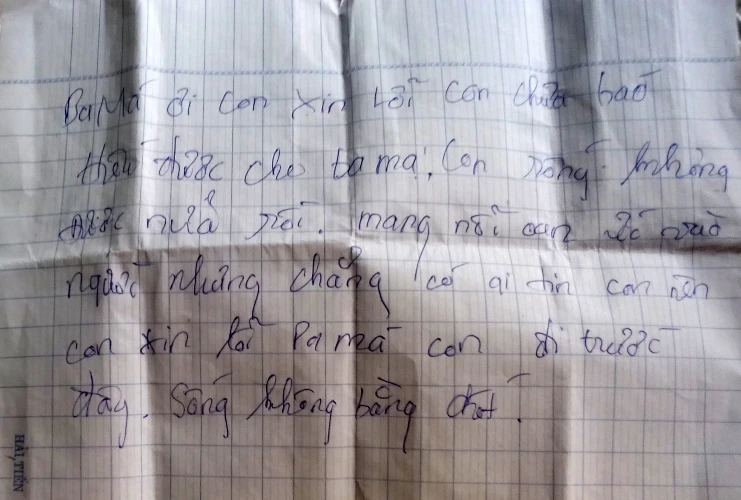 Ba Má ơi con xin lỗi con chưa báo
hiếu được cho ba má, con sống không
được nữa rồi. mang nỗi oan ức vào
người nhưng chẳng có ai tin con nên
con xin lỗi Pa má con đi trước
đây. Sống không bằng chết.
HẢI TIẾN